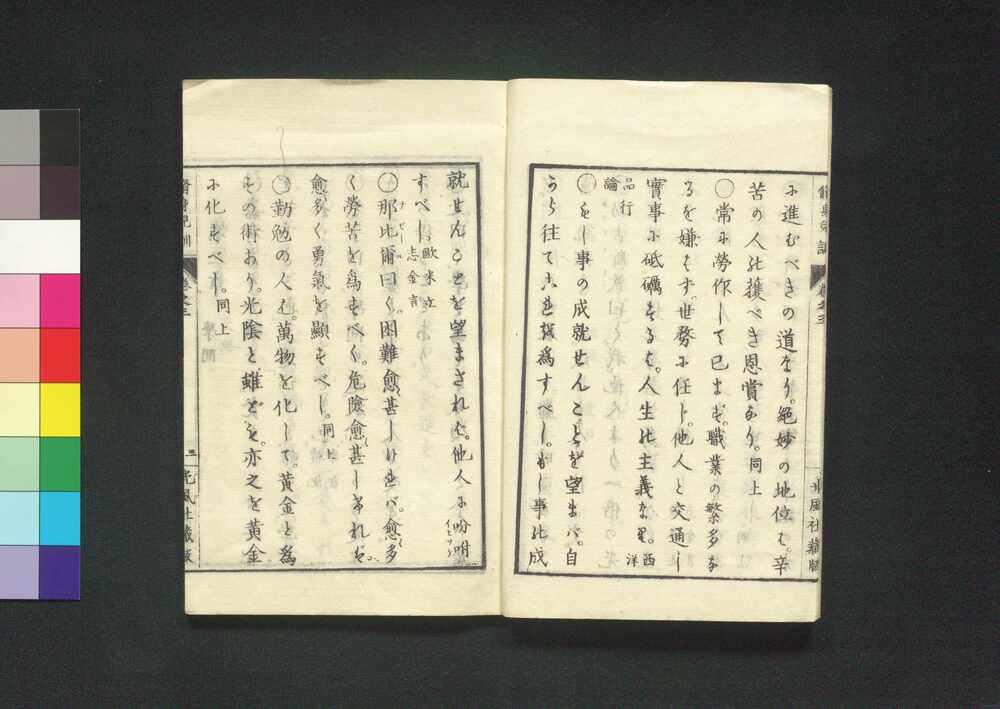 に進むべきの道なり。絶妙の地位も。辛
苦の人の獲べき恩賞なり。同上
○常に勞作して已まず。職業の繁多な
るを嫌はず。世務に任じ。他人と交通し
實事に砥礪するは。人生の主義なり。西洋
品行論
○もし事の成就せんことを望まば。自
から往てこれを爲すべし。もし事の成
就せんことを望まざれば。他人に吩咐
すべし。歐米立志金言
○那比爾曰く。困難愈甚しければ。愈多
く勞苦を爲すべく。危險愈甚しければ。
愈多く勇氣を顯すべし。同上
○勤勉の人も。萬物を化して。黄金と爲
の術あり。光陰と雖ども。亦之を黄金
に化すべし。同上
脩身児訓
卷之三
三
光風社藏版